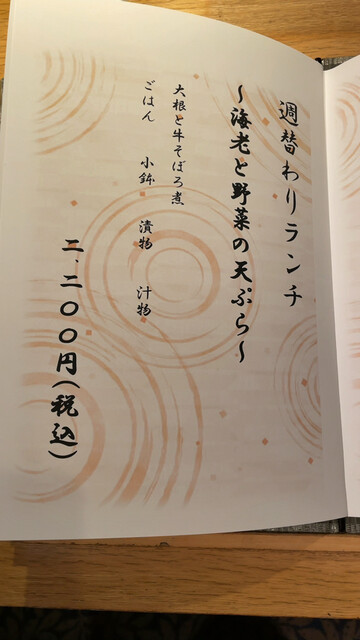 週替わりランチ
～海老と野菜の天ぷら～
大根と牛そぼろ煮
ごはん 小鉢 漬物 汁物
二、二〇〇円(税込)